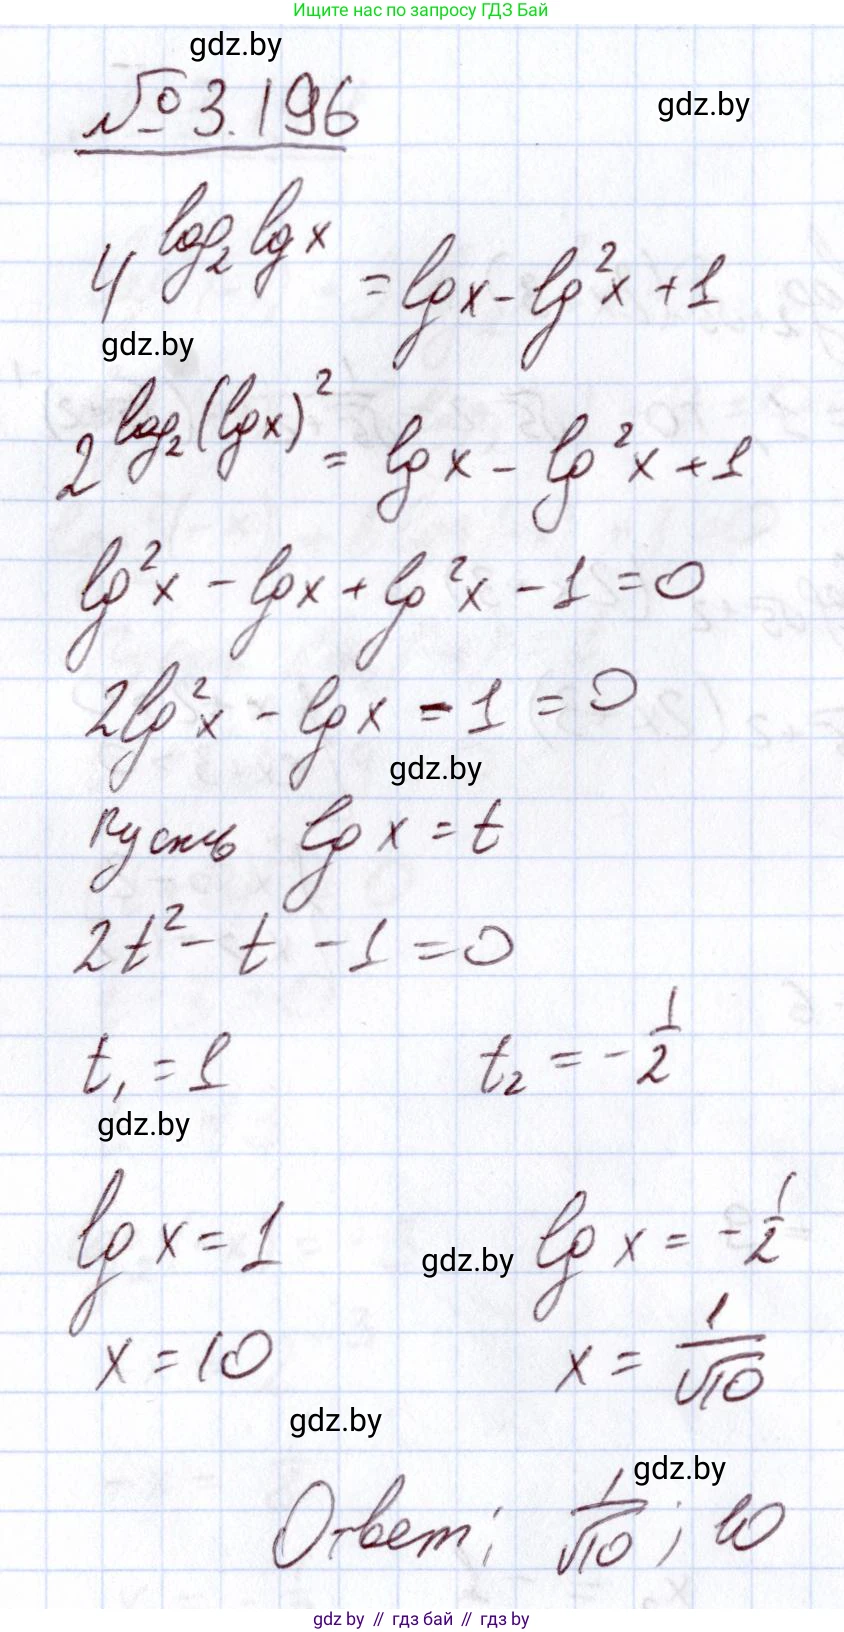 Ищите нас по запросу ГДЗ Бай
gdz.by
№ 3.196
gdz.by
4^{log₂ lg x} = lg x - lg² x + 1
gdz.by
2^{log₂ (lg x)²} = lg x - lg² x + 1
lg² x - lg x + lg² x - 1 = 0
2 lg² x - lg x - 1 = 0
gdz.by
Пусть lg x = t
2t² - t - 1 = 0
t₁ = 1 t₂ = - 1/2
gdz.by
lg x = 1 gdz.by lg x = - 1/2
x = 10 x = 1/√10
gdz.by
gdz.by
Ответ: 1/√10 ; 10
gdz.by // гдз бай // gdz.by